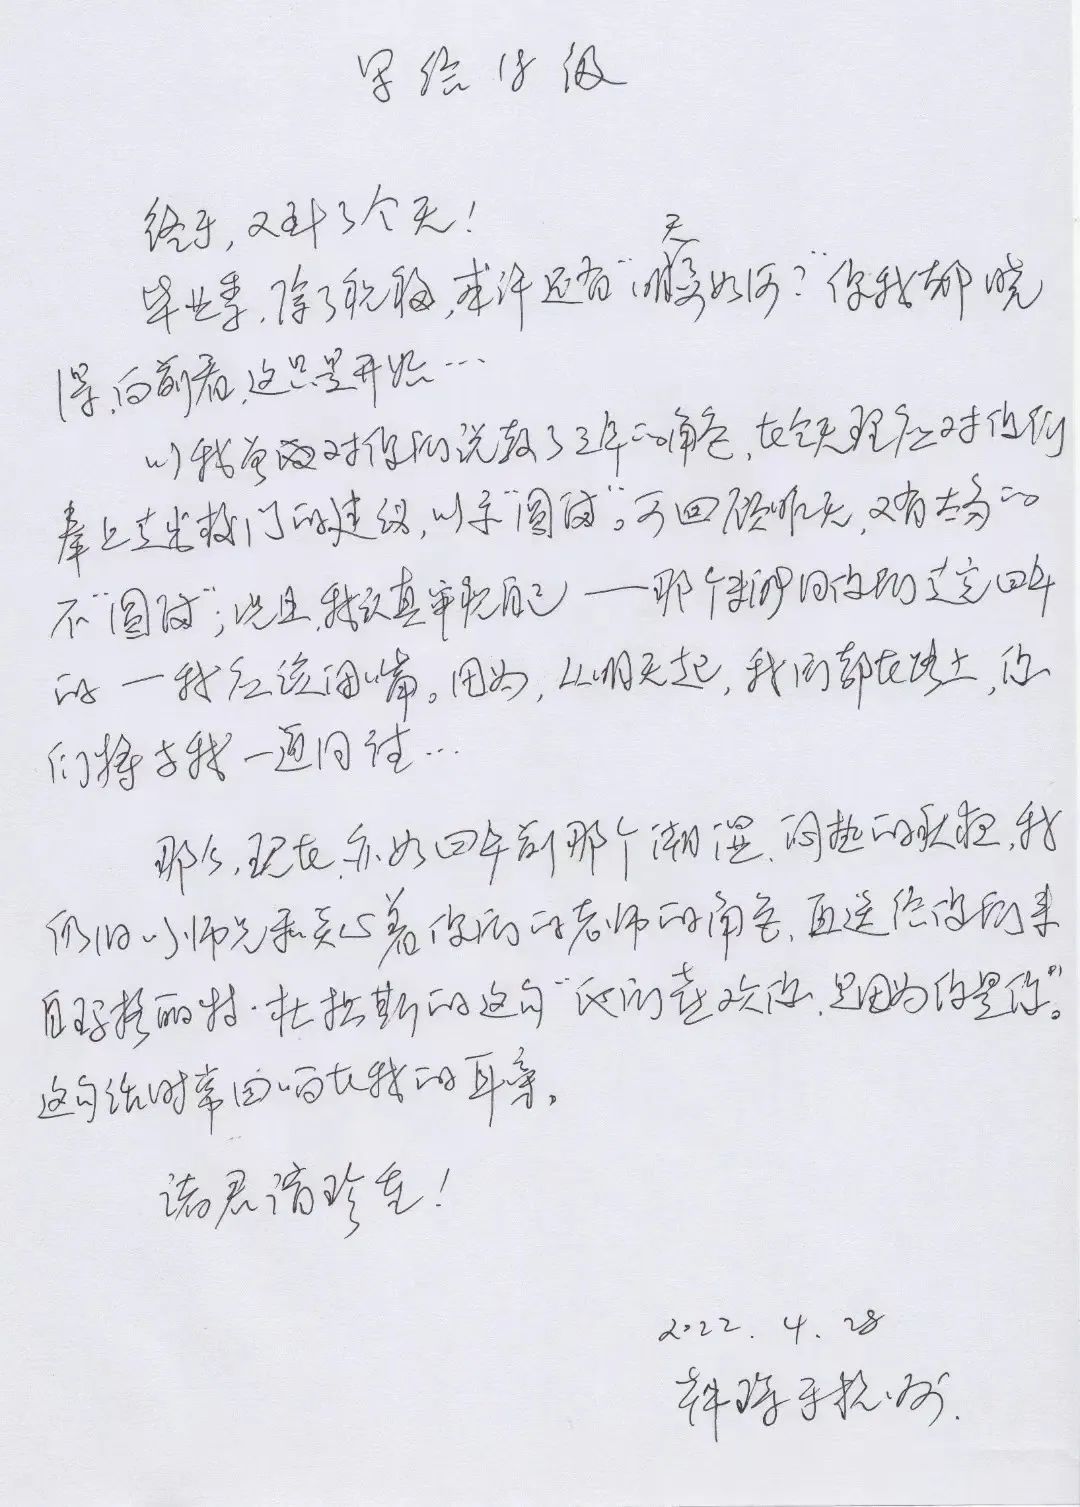 写给18级
终于,又到了今天!
毕业季,除了祝福,或许还有“明天如何?”你我都晓
得,向前看,这只是开始…
以我曾经对你们说教了三年的角色,在今天理应对你们
奉上走出校门的建议,以示“圆满”。可回顾昨天,又有太多的
不“圆满”;况且,我认真审视自己——那个陪你们过完四年
的——我应该闭嘴。因为,从明天起,我们都在路上,你
们将与我一道同往…
那么,现在,亦如四年前那个潮湿、闷热的秋夜,我
仍旧以师兄和关心着你们的老师的角色,且送给你们来
自玛格丽特·杜拉斯的这句“他们喜欢你,是因为你是你”。
这句话时常回响在我的耳旁。
诸君请珍重!
2022.4.28
于杭州.